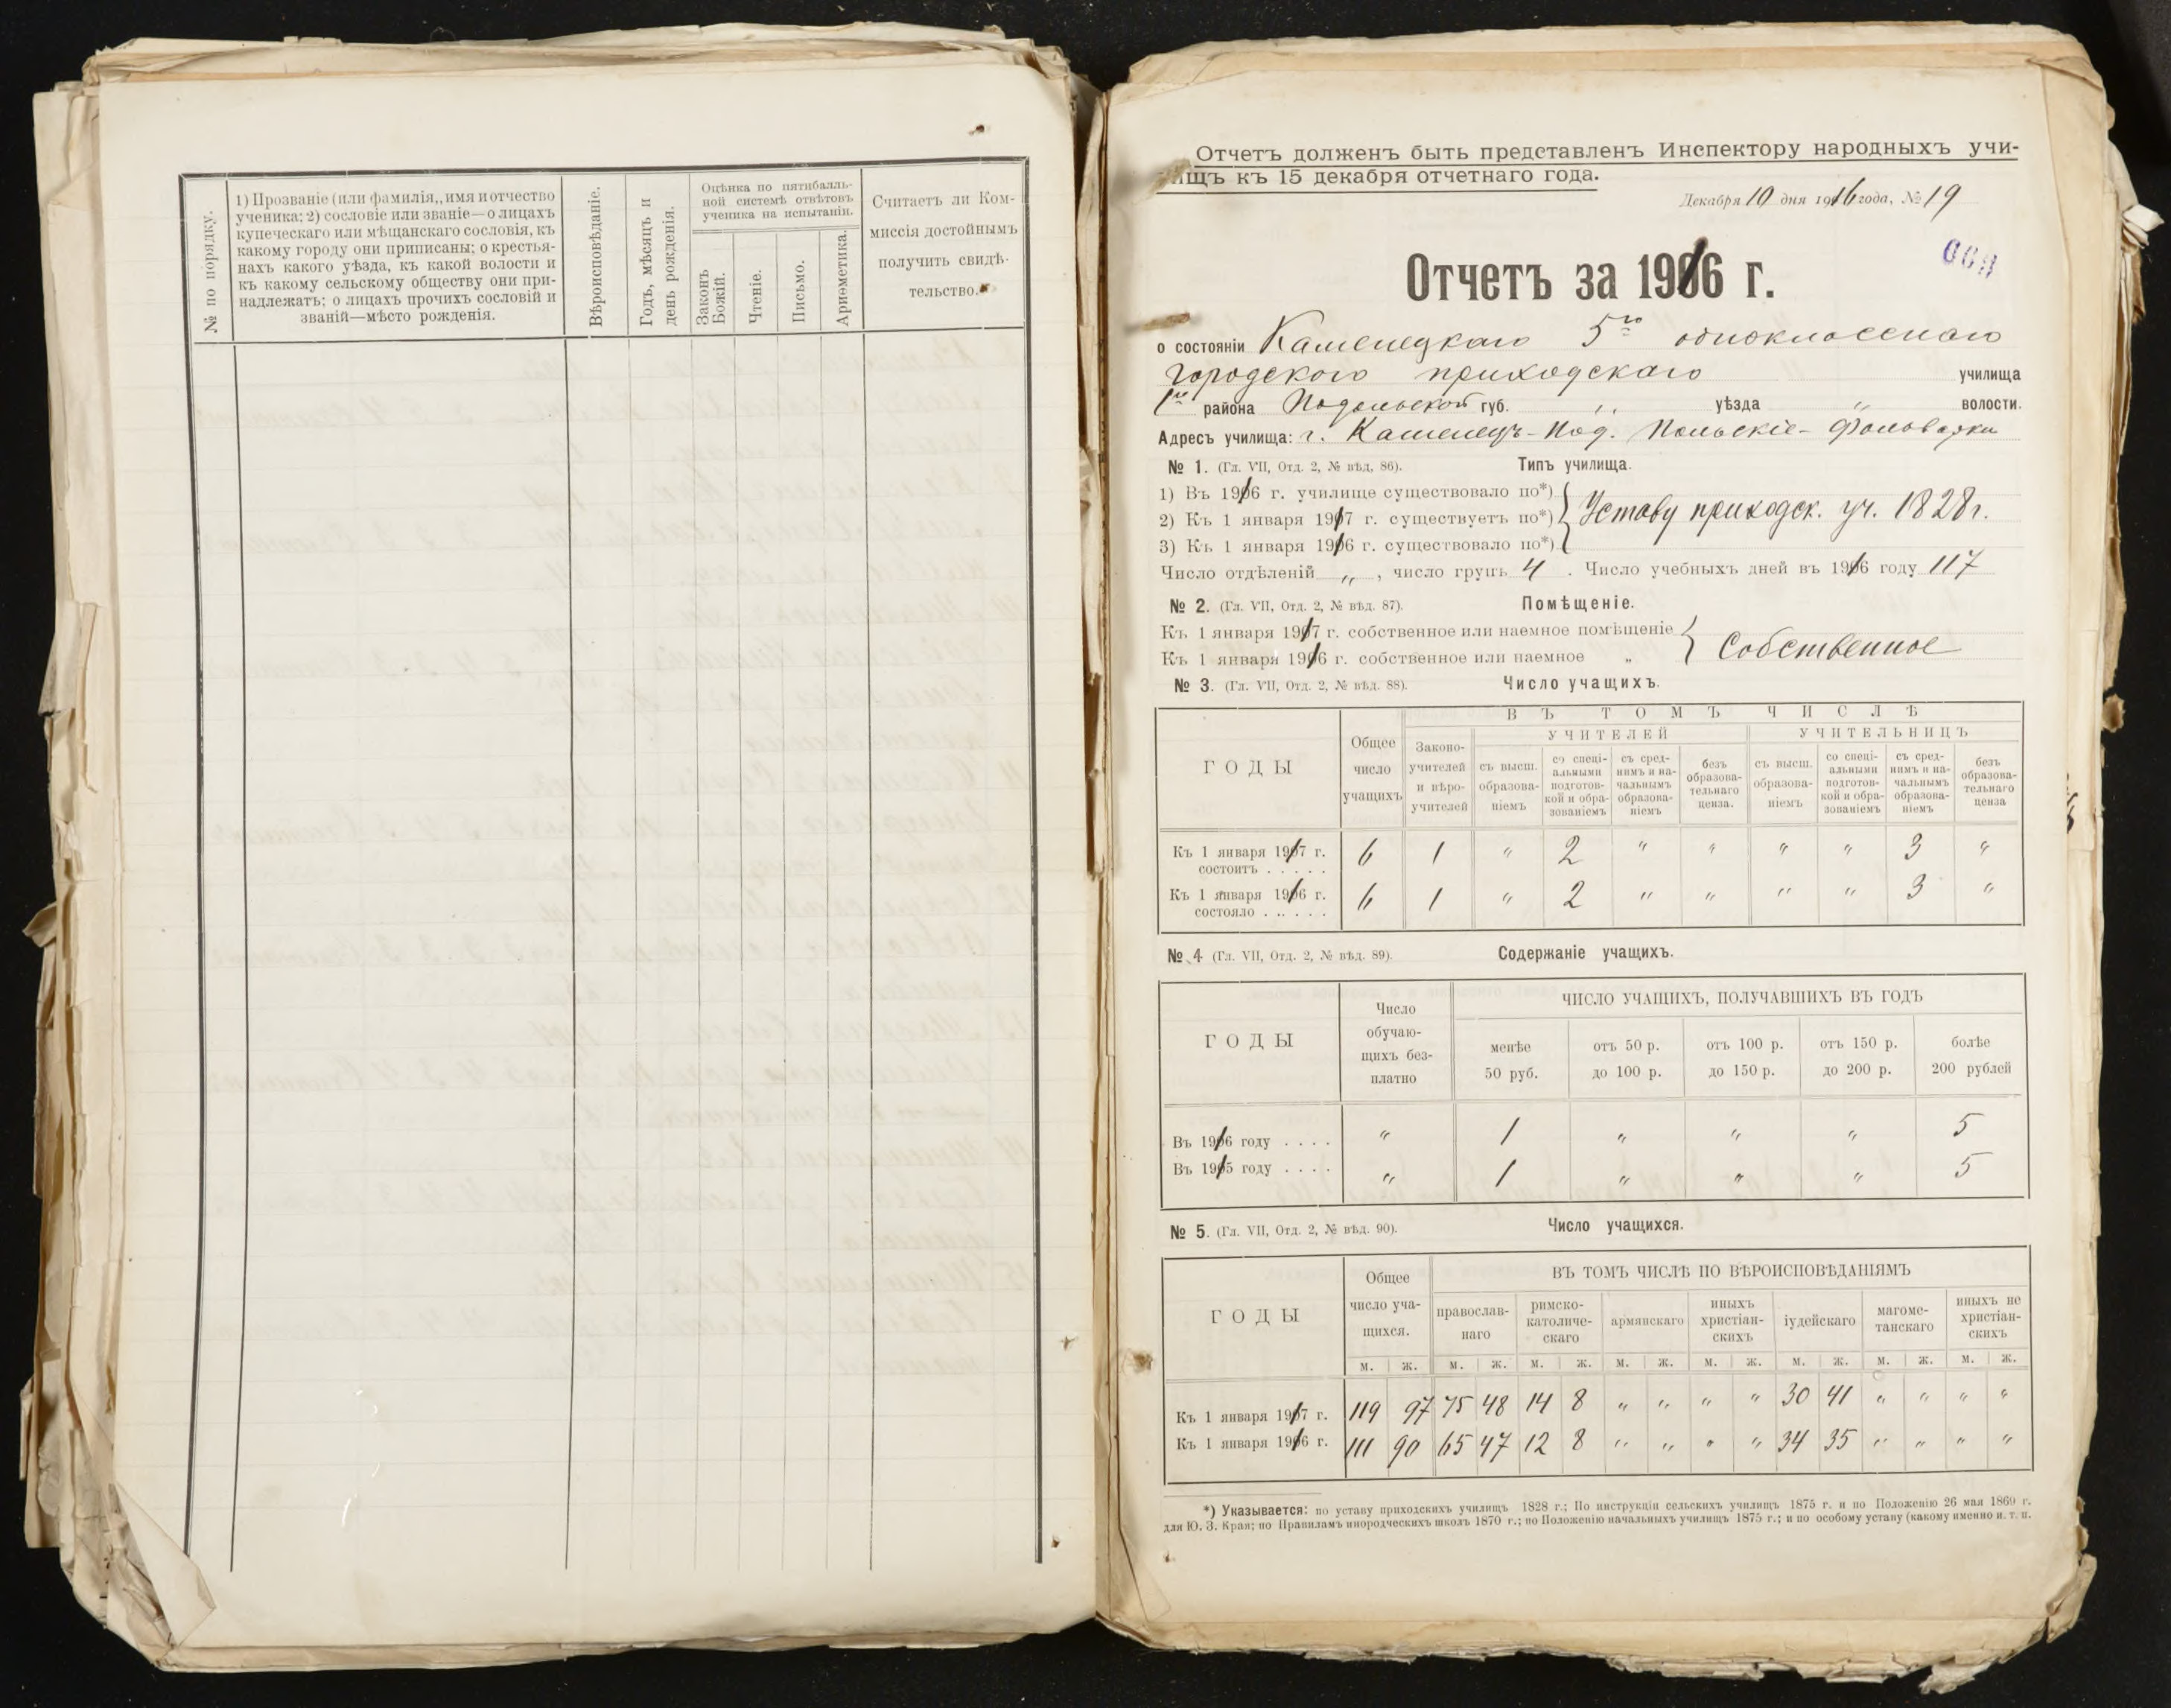 № по порядку.
1) Прозваніе (или фамилія,, имя и отчество
ученика; 2) сословіе или званіе—о лицахъ
купеческаго или мѣщанскаго сословія, къ
какому городу они приписаны; о крестья-
нахъ какого уѣзда, къ какой волости и
къ какому сельскому обществу они при-
надлежатъ; о лицахъ прочихъ сословій и
званій—мѣсто рожденія.
Вѣроисповѣданіе.
Годъ, мѣсяцъ и
день рожденія.
Оцѣнка по пятибалль-
ной системѣ отвѣтовъ
ученика на испытаніи.
Законъ
Божій.
Чтеніе.
Письмо.
Ариѳметика.
Считаетъ ли Ком-
миссія достойнымъ
получить свидѣ-
тельство.
Отчетъ долженъ быть представленъ Инспектору народныхъ учи-
ищъ къ 15 декабря отчетнаго года.
Декабря 10 дня 1916 года, № 19
Отчетъ за 1916 г.
о состояніи Каменецкаго 5го одноклосснаго
городского приходскаго училища
1го района Подольской губ. „ уѣзда „ волости.
Адресъ училища: г. Каменецъ-Под. Польскіе-Фольварки
№ 1. (Гл. VII, Отд. 2, № вѣд, 86). Типъ училища.
1) Въ 1916 г. училище существовало по*)
2) Къ 1 января 1917 г. существуетъ по*) Уставу приходск. уч. 1828 г.
3) Къ 1 января 1916 г. существовало по*)
Число отдѣленій „ , число групъ 4 . Число учебныхъ дней въ 1916 году 117
№ 2. (Гл. VII, Отд. 2, № вѣд. 87). Помѣщеніе.
Къ 1 января 1917 г. собственное или наемное помѣщеніе
Къ 1 января 1916 г. собственное или наемное „ Собственное
№ 3. (Гл. VII, Отд. 2, № вѣд. 88). Число учащихъ.
ГОДЫ
Общее
число
учащихъ
ВЪ ТОМЪ ЧИСЛѢ
Законо-
учителей
и вѣро-
учителей
УЧИТЕЛЕЙ
съ высш.
образова-
ніемъ
со спеці-
альными
подготов-
кой и обра-
зованіемъ
съ сред-
нимъ и на-
чальнымъ
образова-
ніемъ
безъ
образова-
тельнаго
ценза.
УЧИТЕЛЬНИЦЪ
съ высш.
образова-
ніемъ
со спеці-
альными
подготов-
кой и обра-
зованіемъ
съ сред-
нимъ и на-
чальнымъ
образова-
ніемъ
безъ
образова-
тельнаго
ценза
Къ 1 января 1917 г.
состоитъ . . . . . 6 1 „ 2 „ „ „ „ 3 „
Къ 1 января 1916 г.
состояло . . . . . . 6 1 „ 2 „ „ „ „ 3 „
№ 4 (Гл. VII, Отд. 2, № вѣд. 89). Содержаніе учащихъ.
ГОДЫ
Число
обучаю-
щихъ без-
платно
ЧИСЛО УЧАЩИХЪ, ПОЛУЧАВШИХЪ ВЪ ГОДЪ
менѣе
50 руб.
отъ 50 р.
до 100 р.
отъ 100 р.
до 150 р.
отъ 150 р.
до 200 р.
болѣе
200 рублей
Въ 1916 году . . . . „ 1 „ „ „ 5
Въ 1915 году . . . . „ 1 „ „ „ 5
№ 5. (Гл. VII, Отд. 2, № вѣд. 90). Число учащихся.
ГОДЫ
Общее
число уча-
щихся.
ВЪ ТОМЪ ЧИСЛѢ ПО ВѢРОИСПОВѢДАНІЯМЪ
православ-
наго
римско-
католиче-
скаго
армянскаго
иныхъ
христіан-
скихъ
іудейскаго
магоме-
танскаго
иныхъ не
христіан-
скихъ
м. ж. м. ж. м. ж. м. ж. м. ж. м. ж. м. ж. м. ж.
Къ 1 января 1917 г. 119 97 75 48 14 8 „ „ „ „ 30 41 „ „ „ „
Къ 1 января 1916 г. 111 90 65 47 12 8 „ „ „ „ 34 35 „ „ „ „
*) Указывается: по уставу приходскихъ училищъ 1828 г.; По инструкціи сельскихъ училищъ 1875 г. и по Положенію 26 мая 1869 г.
для Ю. З. Края; по Правиламъ инородческихъ школъ 1870 г.; по Положенію начальныхъ училищъ 1875 г.; и по особому уставу (какому именно и. т. п.